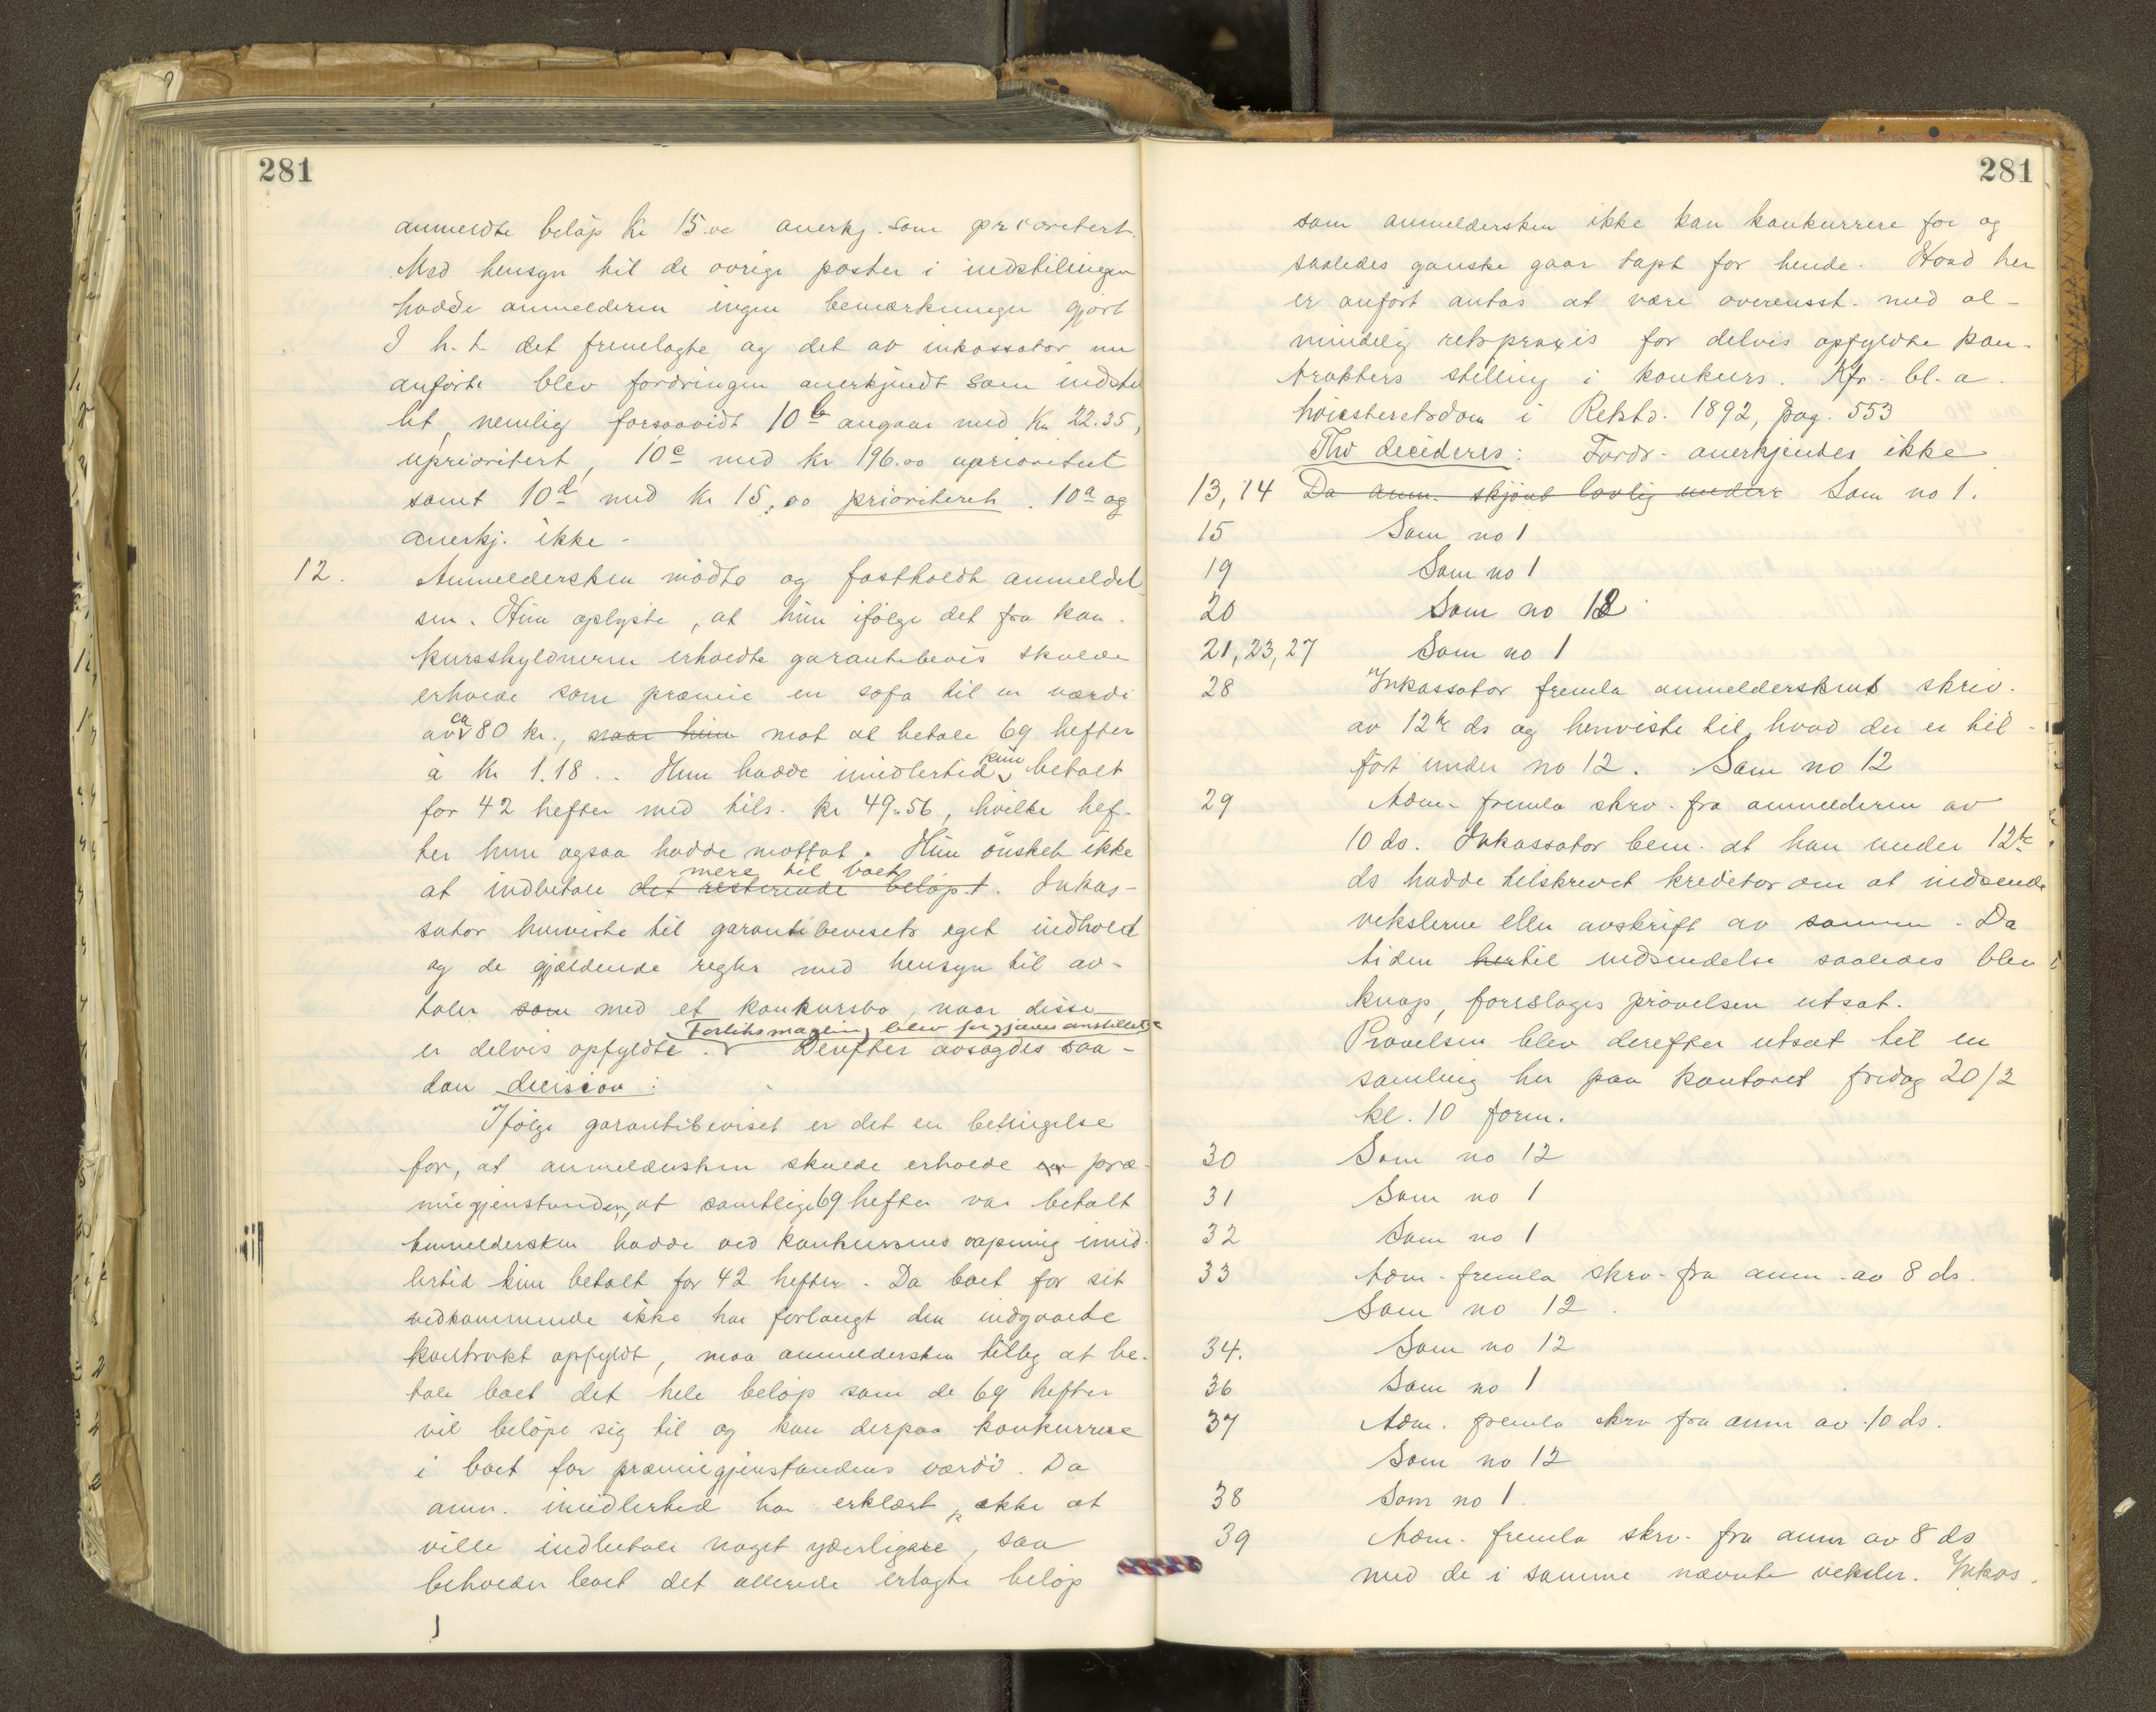 281
anmeldte beløp kr 15.00 anerkj. som prioritert.
Med hensyn til de øvrige poster i indstillingen
hadde anmelderen ingen bemærkninger gjort
I h. t. det fremlagte og det av inkassator nu
anførte blev fordringen anerkjendt som indstil
let, nemlig forsaavidt 10b angaar med kr 22.35,
uprioritert, 10c med kr 196.00 uprioritert
samt 10d med kr 15,00 prioritert. 10a og
anerkj. ikke -
12. Anmeldersken mødte og fastholdt anmeldel
sen. Hun oplyste, at hun ifølge det fra kon-
kursskyldneren erholdte garantibevis skulde
erholde som præmie en sofa til en værdi
av ca 80 kr., naar hun mot at betale 69 hefter
à kr 1.18.. Hun hadde imidlertid kun betalt
for 42 hefter med tils. kr 49.56, hvilke hef-
ter hun ogsaa hadde mottat. Hun ønsket ikke
mere til boet
at indbetale det resterende beløp.t. Inkas-
sator henviste til garantibevisets eget indhold
og de gjældende regler med hensyn til av-
taler som med et konkursbo, naar disse
Forliksmægling blev forgjæves anstillet.
er delvis opfyldte. Derefter avsagdes saa-
dan decision:
Ifølge garantibeviset er det en betingelse
for, at anmeldersken skulde erholde en præ-
miegjenstanden, at samtlige 69 hefter var betalt
Anmeldersken hadde ved konkursens aapning imid-
lertid kun betalt for 42 hefter. Da boet for sit
vedkommende ikke har forlangt den indgaaede
kontrakt opfyldt, maa anmeldersken tilby at be-
tale boet det hele beløp som de 69 hefter
vil beløpe sig til og kan derpaa konkurrere
i boet for præmiegjenstandens værdi. Da
anm. imidlertid har erklært, ikke at
ville indbetale noget yderligere, saa
beholder boet det allerede erlagte beløp
281
som anmeldersken ikke kan konkurrere for og
saaledes ganske gaar tapt for hende. Hvad her
er anført antas at være overensst. med al-
mindelig retspraxis for delvis opfyldte kon-
trakters stilling i konkurs. Kfr. bl. a.
høiesteretsdom i Retstd. 1892, pag. 553
Thi decideres: Fordr. anerkjendes ikke
13, 14 Da anm. skjønt lovlig Som no 1.
15 Som no 1
19 Som no 1
20 Som no 12
21, 23, 27 Som no 1
28 Inkassator fremla anmelderskens skriv.
av 12te ds og henviste til, hvad der er til-
ført under no 12. Som no 12
29 Adm. fremla skrv. fra anmelderen av
10 ds. Inkassator bem. at han under 12te
ds hadde tilskrevet kreditor om at indsende
vekslerne eller avskrift av samme. Da
tiden hertil indsendelse saaledes blev
knap, foreslages prøvelsen utsat.
Prøvelsen blev derefter utsat til en
samling her paa kontoret fredag 20/2
kl. 10 form.
30 Som no 12
31 Som no 1
32 Som no 1
33 Adm. fremla skrv. fra anm. av 8 ds.
Som no 12.
34. Som no 12
36 Som no 1
37 Adm. fremla skrv fra anm av 10 ds.
Som no 12
38 Som no 1.
39 Adm. fremla skrv. fra anm av 8 ds
med de i samme nævnte veksler. Inkas-